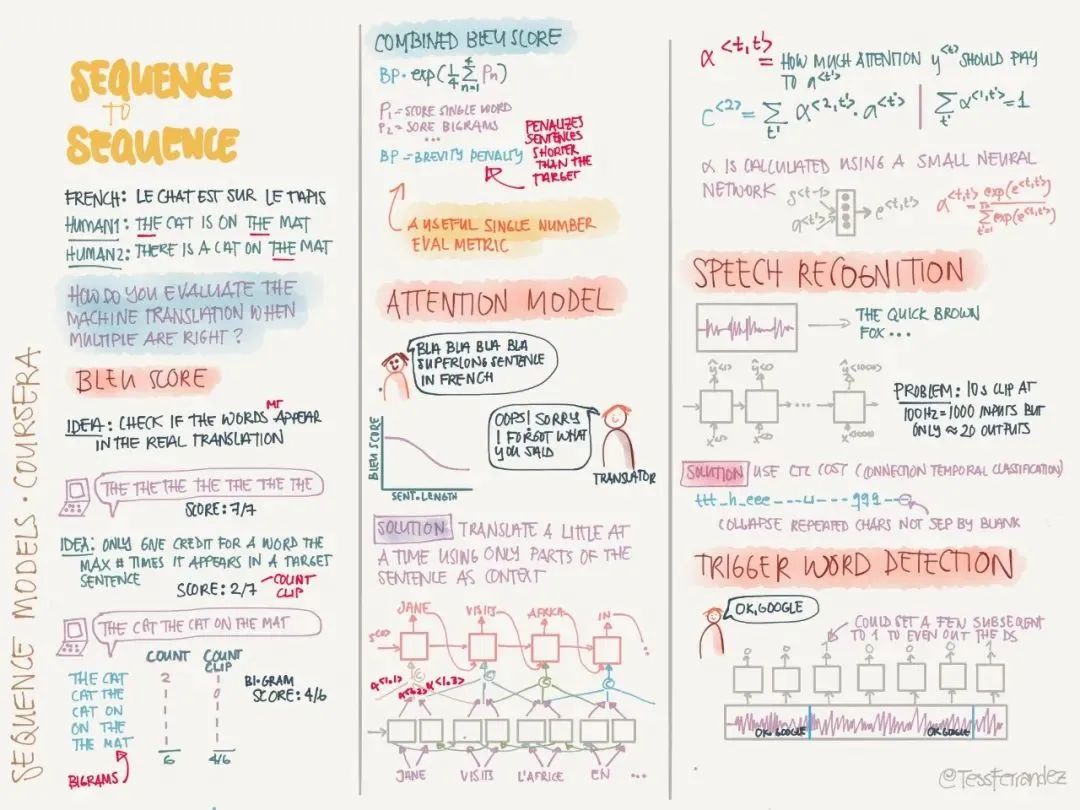 SEQUENCE
TO
SEQUENCE
FRENCH: LE CHAT EST SUR LE TAPIS
HUMAN1: THE CAT IS ON THE MAT
HUMAN2: THERE IS A CAT ON THE MAT
HOW DO YOU EVALUATE THE
MACHINE TRANSLATION WHEN
MULTIPLE ARE RIGHT?
BLEU SCORE
IDEA: CHECK IF THE WORDS MT APPEAR
IN THE REAL TRANSLATION
THE THE THE THE THE THE THE
SCORE: 7/7
IDEA: ONLY GIVE CREDIT FOR A WORD THE
MAX # TIMES IT APPEARS IN A TARGET
SENTENCE
SCORE: 2/7
COUNT
CLIP
THE CAT THE CAT ON THE MAT
COUNT
COUNT
CLIP
THE CAT 2 1
CAT THE 1 0
CAT ON 1 1
ON THE 1 1
THE MAT 1 1
6 4/6
BI-GRAM
SCORE: 4/6
BIGRAMS
SEQUENCE MODELS · COURSERA
COMBINED BLEU SCORE
BP · exp(1/4 Σ n=1 4 Pn)
P1 = SCORE SINGLE WORD
P2 = SORE BIGRAMS
...
BP = BREVITY PENALTY
PENALIZES
SENTENCES
SHORTER
THAN THE
TARGET
A USEFUL SINGLE NUMBER
EVAL METRIC
ATTENTION MODEL
BLA BLA BLA BLA
SUPERLONG SENTENCE
IN FRENCH
OOPS! SORRY
I FORGOT WHAT
YOU SAID
TRANSLATOR
BLEU SCORE
SENT. LENGTH
SOLUTION TRANSLATE A LITTLE AT
A TIME USING ONLY PARTS OF THE
SENTENCE AS CONTEXT
JANE VISITS AFRICA IN ...
S<0>
C C C C
α<1,1> α<1,2> α<1,3>
JANE VISITS L'AFRICE EN ...
α<t,t'> = HOW MUCH ATTENTION y<t> SHOULD PAY
TO a<t'>
C<2> = Σt' α<2,t'> · a<t'> | Σt' α<1,t'> = 1
α IS CALCULATED USING A SMALL NEURAL
NETWORK
S<t-1>
a<t'>
e<t,t'>
α<t,t'> = exp(e<t,t'>) / Σ t'=1 exp(e<t,t'>)
SPEECH RECOGNITION
THE QUICK BROWN
FOX ...
ŷ<1> ŷ<2> ŷ<1000>
...
x<1> x<2> x<1000>
PROBLEM: 10s CLIP AT
100Hz = 1000 INPUTS BUT
ONLY ≈ 20 OUTPUTS
SOLUTION USE CTC COST (CONNECTION TEMPORAL CLASSIFICATION)
COLLAPSE REPEATED CHARS NOT SEP BY BLANK
TRIGGER WORD DETECTION
OK, GOOGLE
COULD SET A FEW SUBSEQUENT
TO 1 TO EVEN OUT THE DS
0 0 1 0 0 0 1
OK, GOOGLE OK GOOGLE
@TessFerrandez